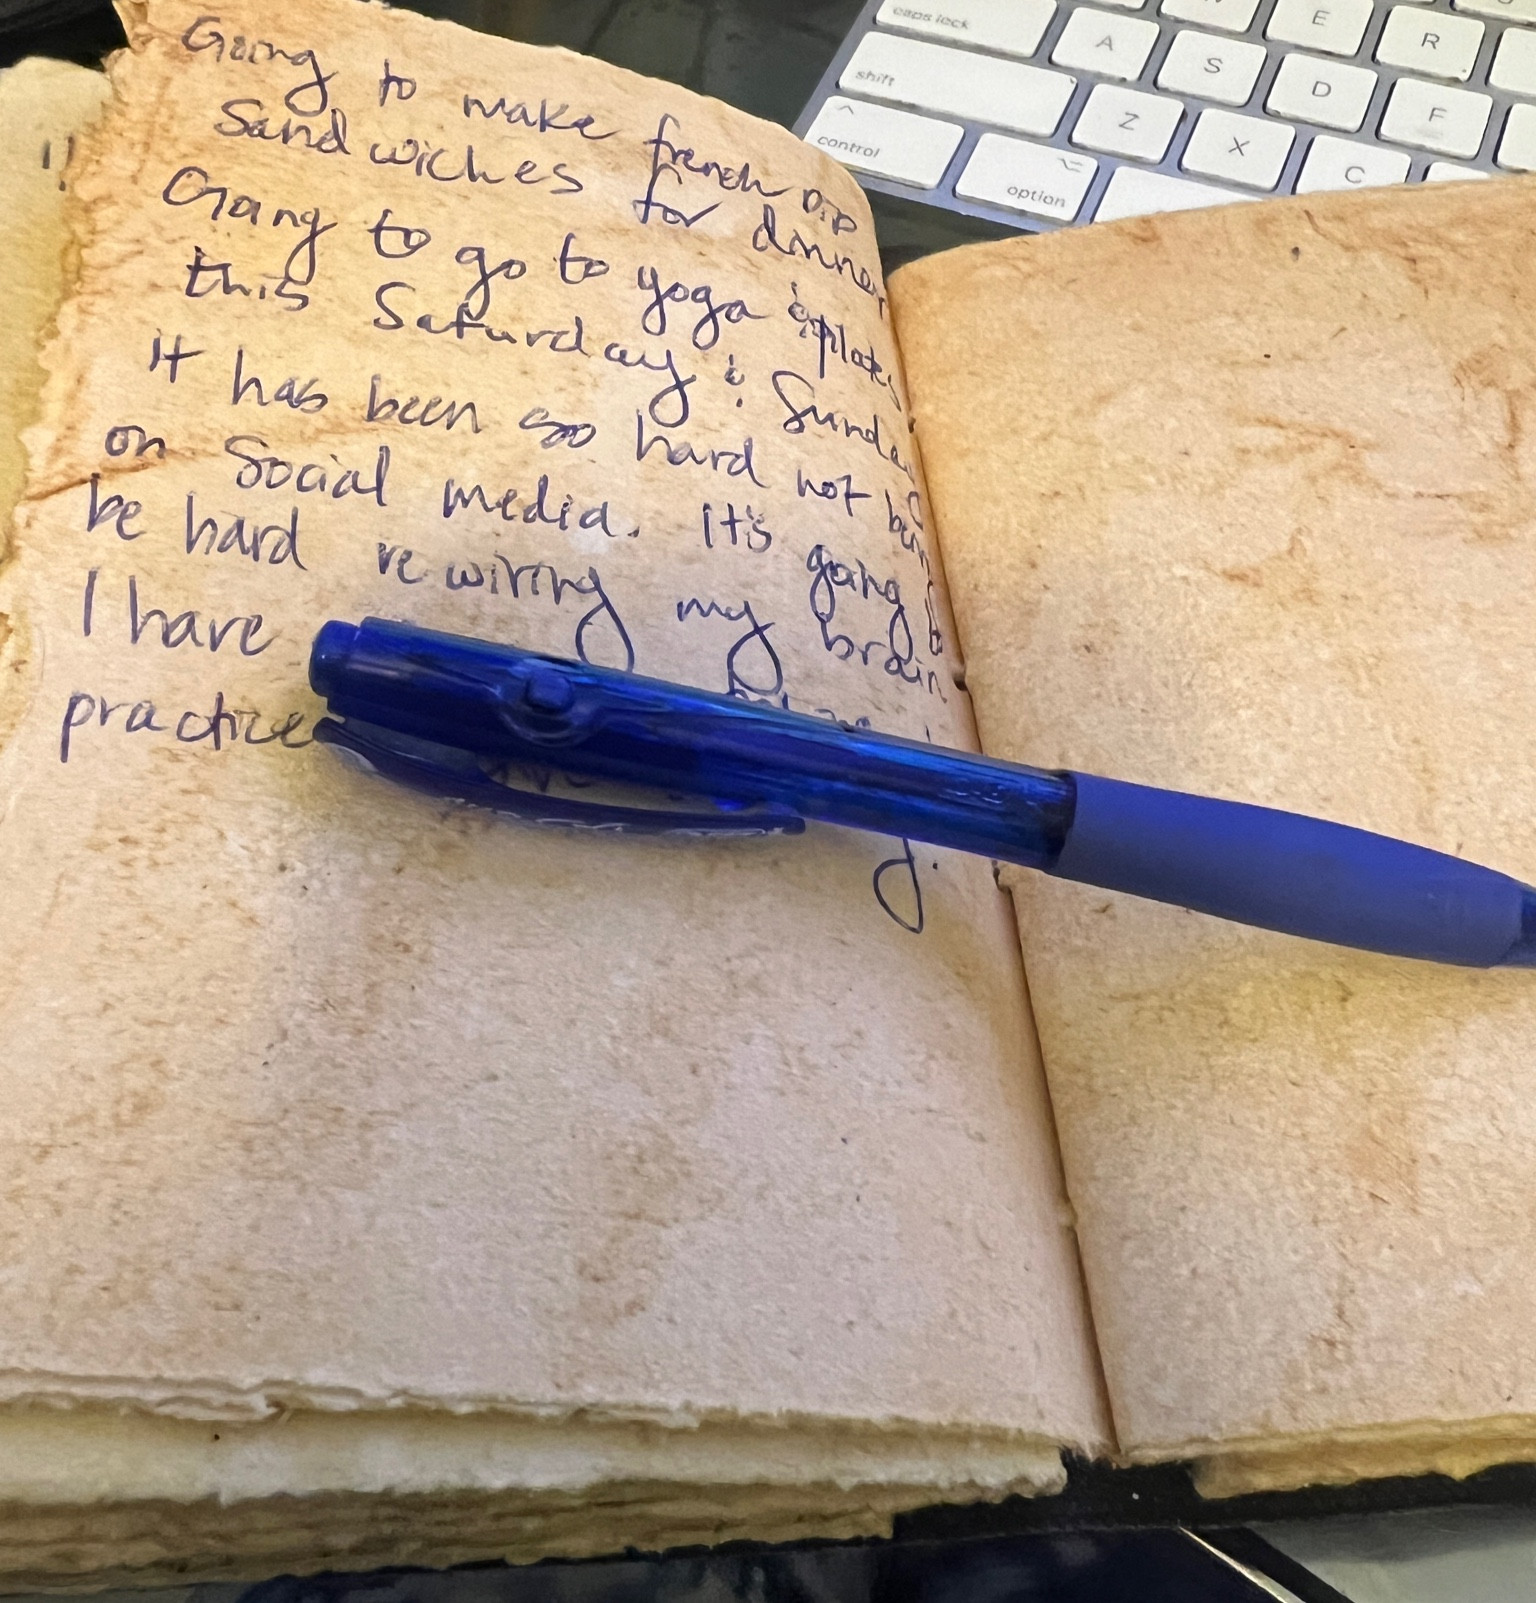 Going to make french DIP
Sandwiches for dinner
Going to go to yoga & pilates
this Saturday & Sunday
it has been so hard not being
on Social media. It's going to
be hard rewiring my brain
I have
practice
!!
caps lock
A
S
D
E
R
F
shift
Z
X
C
control
option